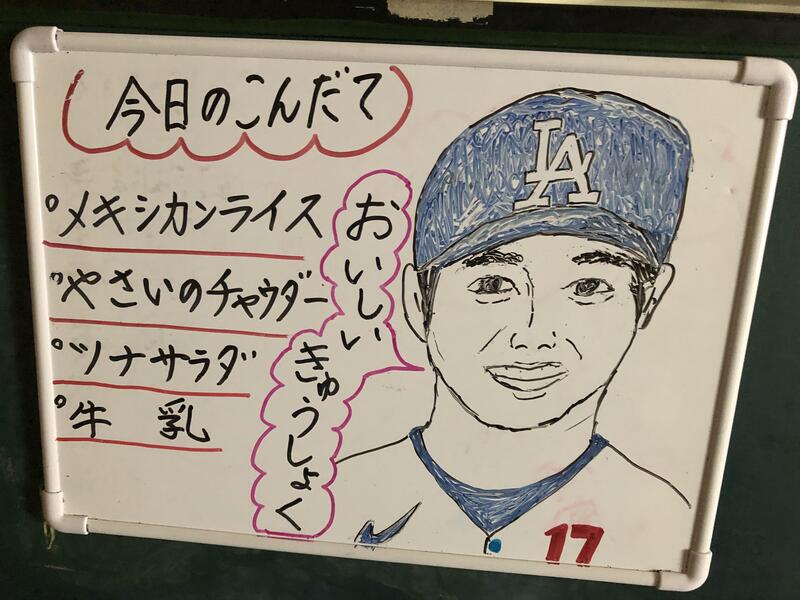 今日のこんだて
°メキシカンライス
°やさいのチャウダー
°ツナサラダ
°牛　乳
おいしい
きゅうしょく
LA
17